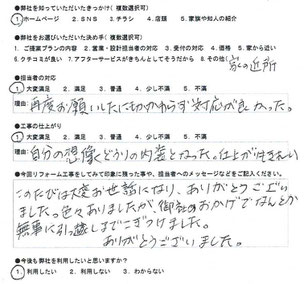 ●弊社を知っていただいたきっかけ(複数選択可)
1. ホームページ 2. SNS 3. チラシ 4. 店頭 5. 家族や知人の紹介
●弊社をお選びいただいた決め手(複数選択可)
1. ご提案プランの内容 2. 営業・設計担当者の対応 3. 受付の対応 4. 価格 5. 家から近い
6. クチコミが良い 7. アフターサービスがきちんとしてそうだから 8. その他( 家の近所
●担当者の対応
1. 大変満足 2. 満足 3. 普通 4. 少し不満 5. 不満
理由: 再度お願いしたにもかかわらず対応が良かった。
●工事の仕上がり
1. 大変満足 2. 満足 3. 普通 4. 少し不満 5. 不満
理由: 自分の想像どうりの内装となった。仕上がりきれい
●今回リフォーム工事をしてみて印象に残った事や、担当者へのメッセージなどをご記入ください。
このたびは大変お世話になり、ありがとうござい
ました。色々ありましたが、御社のおかげでなんとか
無事に引っ越しまでこぎつけました。
ありがとうございました。
●今後も弊社を利用したいと思いますか?
1. 利用したい 2. 利用しない 3. わからない